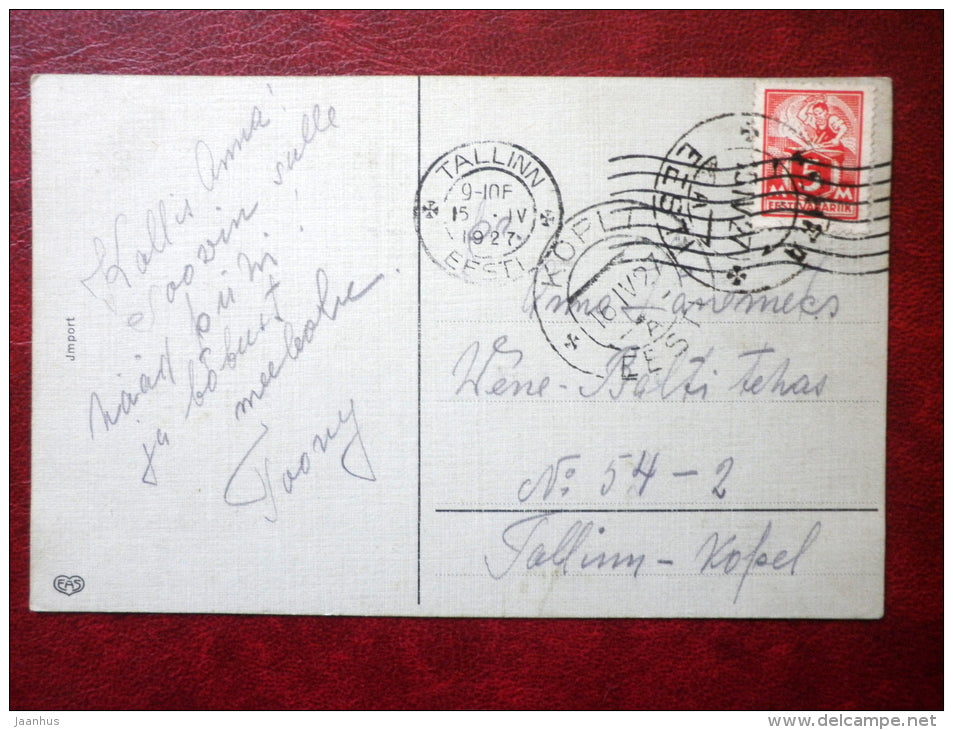 Kallis Anna!
Soovin sulle
häid pühi!
ja lõbust
meeleolu.
Toony
Jmport
EAS
TALLINN
9-10 F
15 IV
1927
EESTI
KOPLI
16 IV 27
5
M M
EESTI VABARIIK
Anna
Wene-Balti tehas
No 54-2
Tallinn-Kopel
jaanhus
www.delcampe.net